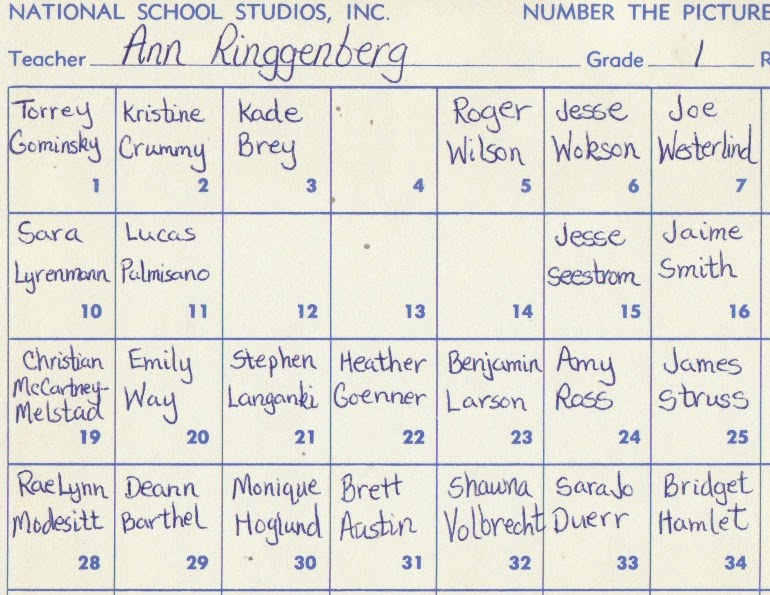 NATIONAL SCHOOL STUDIOS, INC. NUMBER THE PICTURE
Teacher Ann Ringgenberg Grade 1 R
Torrey Kristine Kade Roger Jesse Joe
Gominsky Crummy Brey Wilson Wokson Westerlind
1 2 3 4 5 6 7
Sara Lucas Jesse Jaime
Lyrenmann Palmisano Seestrom Smith
10 11 12 13 14 15 16
Christian Emily Stephen Heather Benjamin Amy James
McCartney- Way Langanki Goenner Larson Ross Struss
Melstad
19 20 21 22 23 24 25
RaeLynn Deann Monique Brett Shawna SaraJo Bridget
Modesitt Barthel Hoglund Austin Volbrecht Duerr Hamlet
28 29 30 31 32 33 34